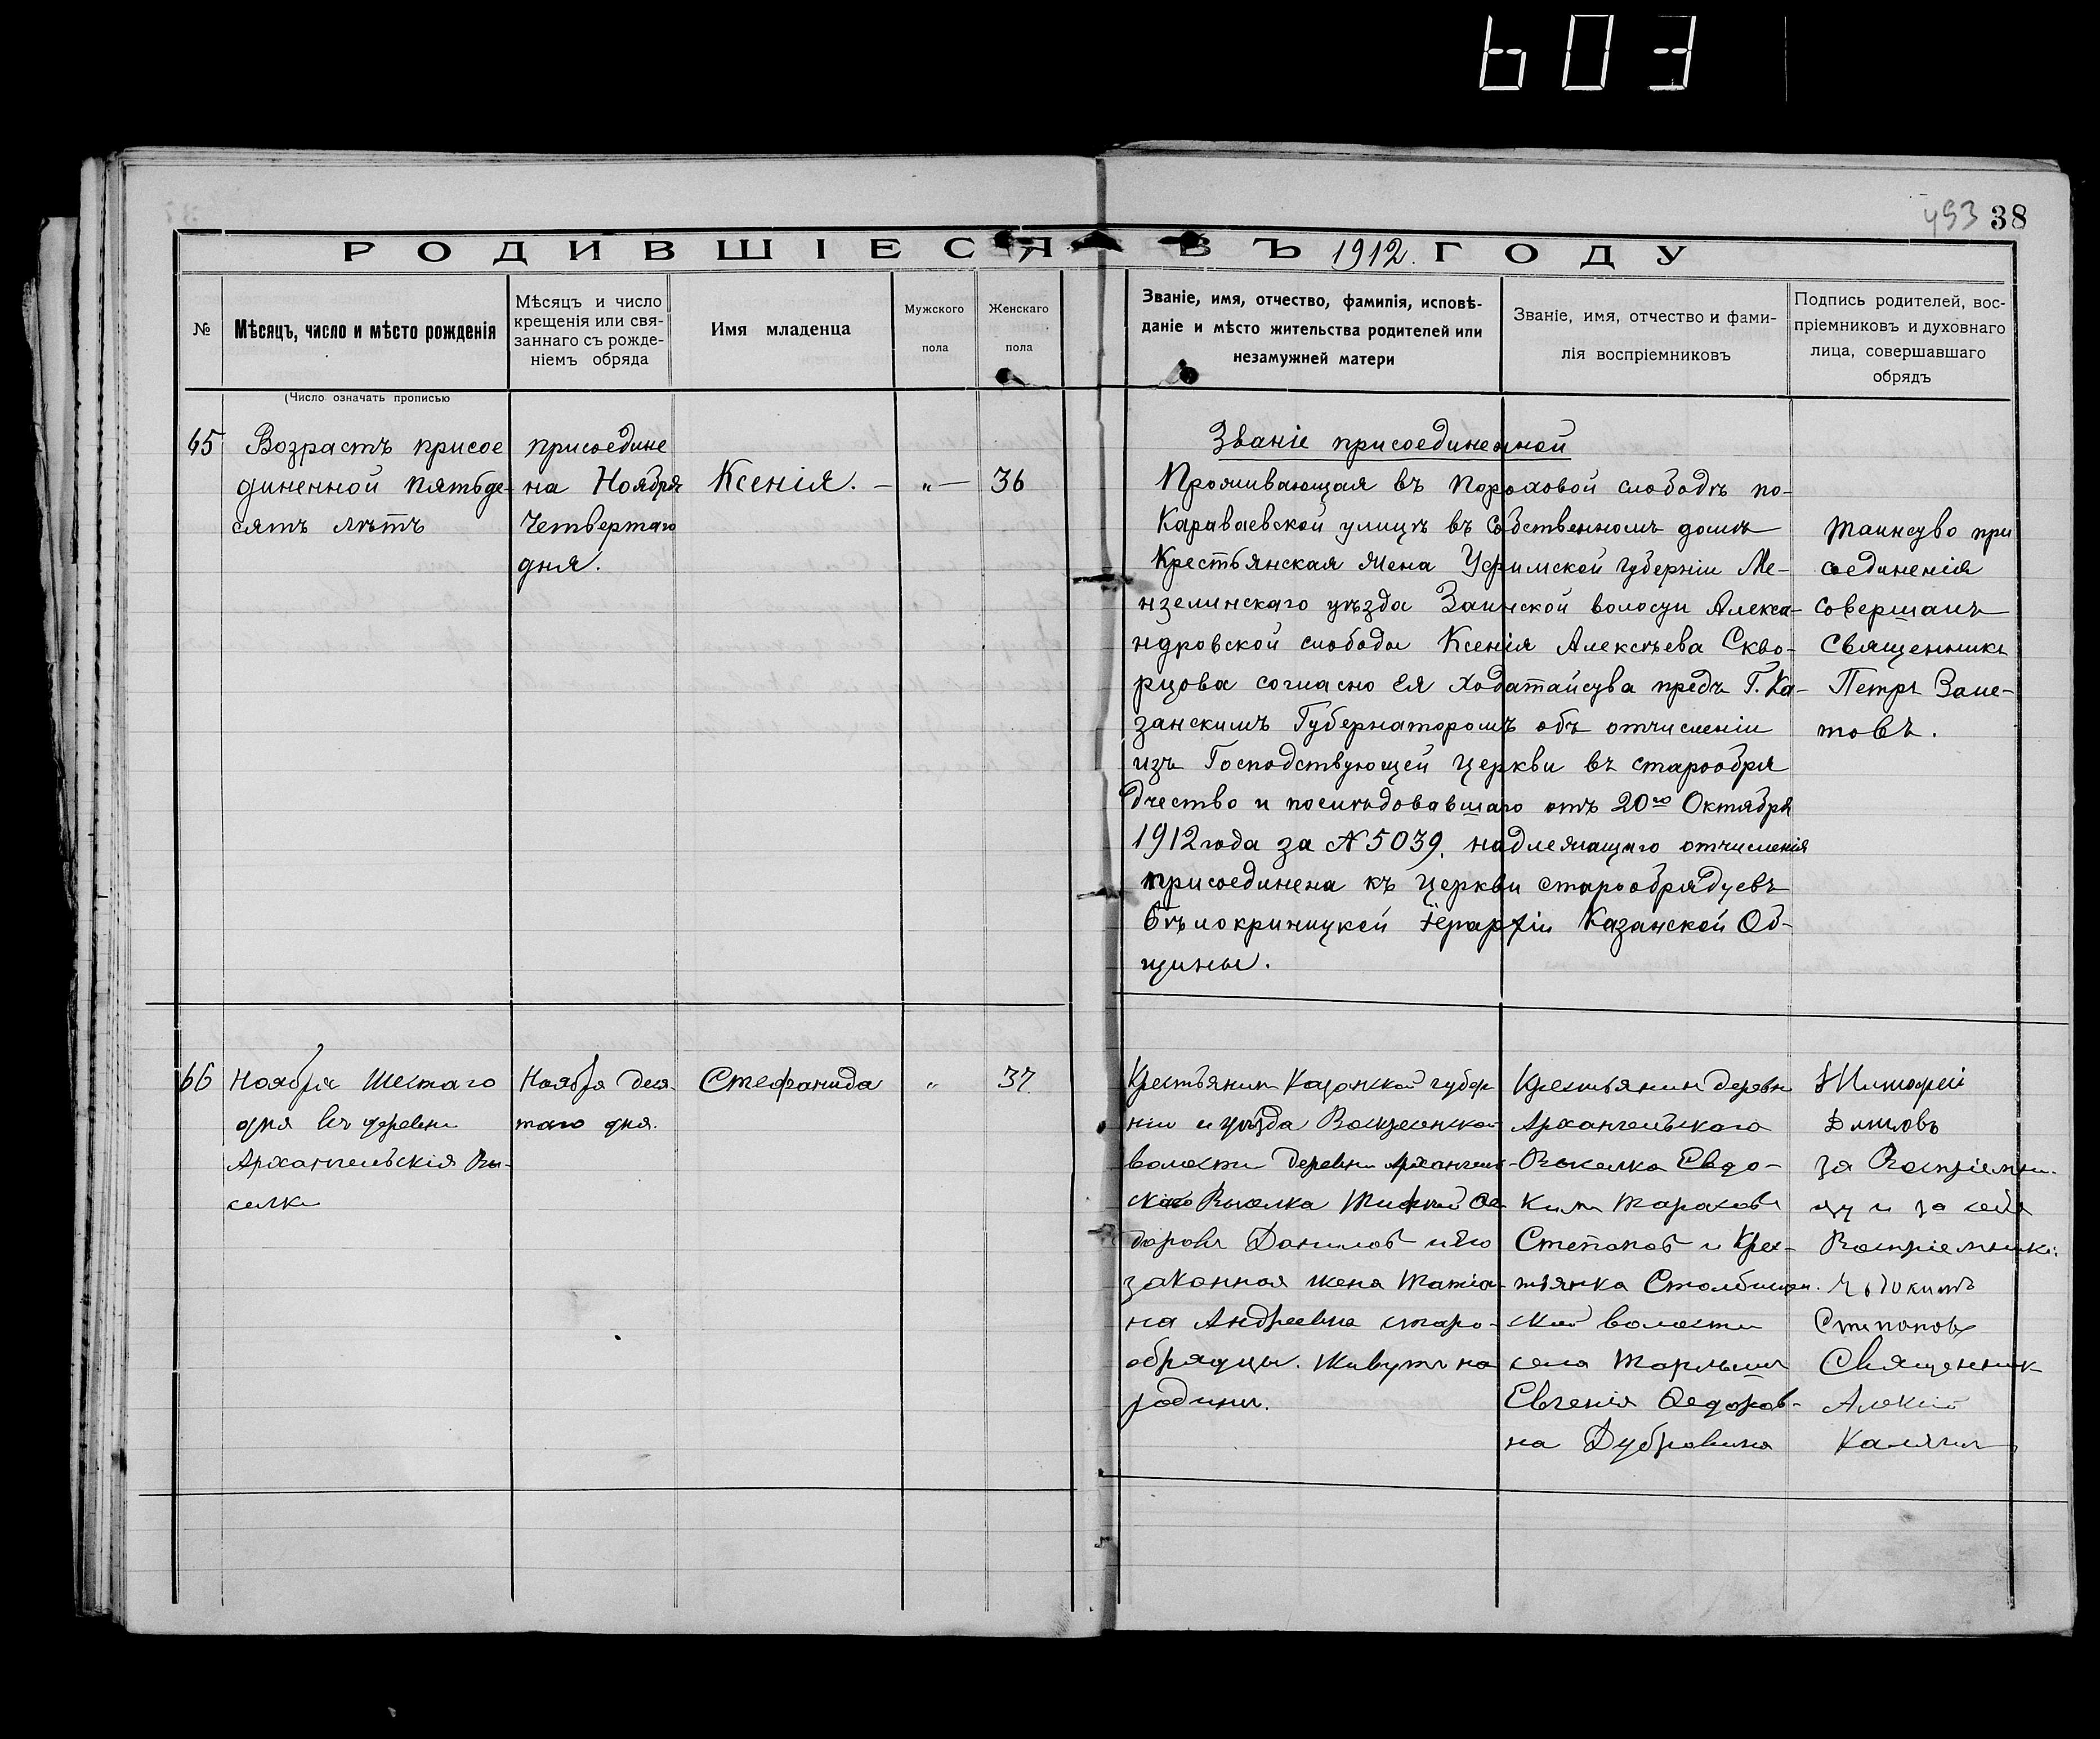 603
493 38
РОДИВШІЕСЯ ВЪ 1912. ГОДУ
№
Мѣсяцъ, число и мѣсто рожденія
Мѣсяцъ и число
крещенія или свя-
заннаго съ рожде-
ніемъ обряда
Имя младенца
Мужского
пола
Женскаго
пола
Званіе, имя, отчество, фамилія, исповѣ-
даніе и мѣсто жительства родителей или
незамужней матери
Званіе, имя, отчество и фами-
лія воспріемниковъ
Подпись родителей, вос-
пріемниковъ и духовнаго
лица, совершавшаго
обрядъ
(Число означать прописью
65
Возрастъ присое
диненной пятьде-
сятъ лѣтъ
присоедине
на Ноября
Четвертаго
дня.
Ксенія. —
„ —
36
Званіе присоединенной
Проживающая въ Пороховой слободѣ по-
Караваевской улицѣ въ собственномъ домѣ
Крестьянская жена Уфимской Губерніи Ме-
нзелинскаго уѣзда Заинской волости Алекса-
ндровской слободы Ксенія Алексѣева Скво-
рцова согласно ея ходатайства предъ Г. Ка-
занскимъ Губернаторомъ объ отчисленіи
изъ Господствующей Церкви въ старообря
дчество и послѣдовавшаго отъ 20го Октября
1912 года за № 5039. надлежащаго отчисленія
присоединена къ Церкви старообрядцевъ
Бѣлокриницкой Іерархіи Казанской Об-
щины.
Таинство при
соединенія
совершалъ
Священникъ
Петръ Заме-
товъ.
66
Ноября Шестаго
дня въ деревни
Архангельскія Вы-
селки
Ноября деся
таго дня.
Стефанида
„
37.
Крестьянинъ Казанской губер
ніи и уѣзда Воскресенской
волости деревни Архангель-
скаго Выселка Тимофей Ѳе
доровъ Даниловъ и его
законная жена Татіа-
на Андреевна старо-
обрядцы. Живутъ на
родинѣ.
Крестьянинъ деревни
Архангельскаго
Выселка Евдо-
кимъ Тарасовъ
Степановъ и Крес-
тьянка Столбищен.
ской волости
села Тарлаши
Евгенія Ѳедоров-
на Дубровина
Тимофей
за Воспріемни-
цу и за себя
Воспріемникъ:
Евдокимъ
Степановъ
Священникъ
Алексій
Калягинъ